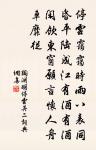 停雲靄靄時雨八表同
昏平陸成江有酒有酒
閒飲東窗願言懷人舟
車靡從
淵明停雲其二詞典
網